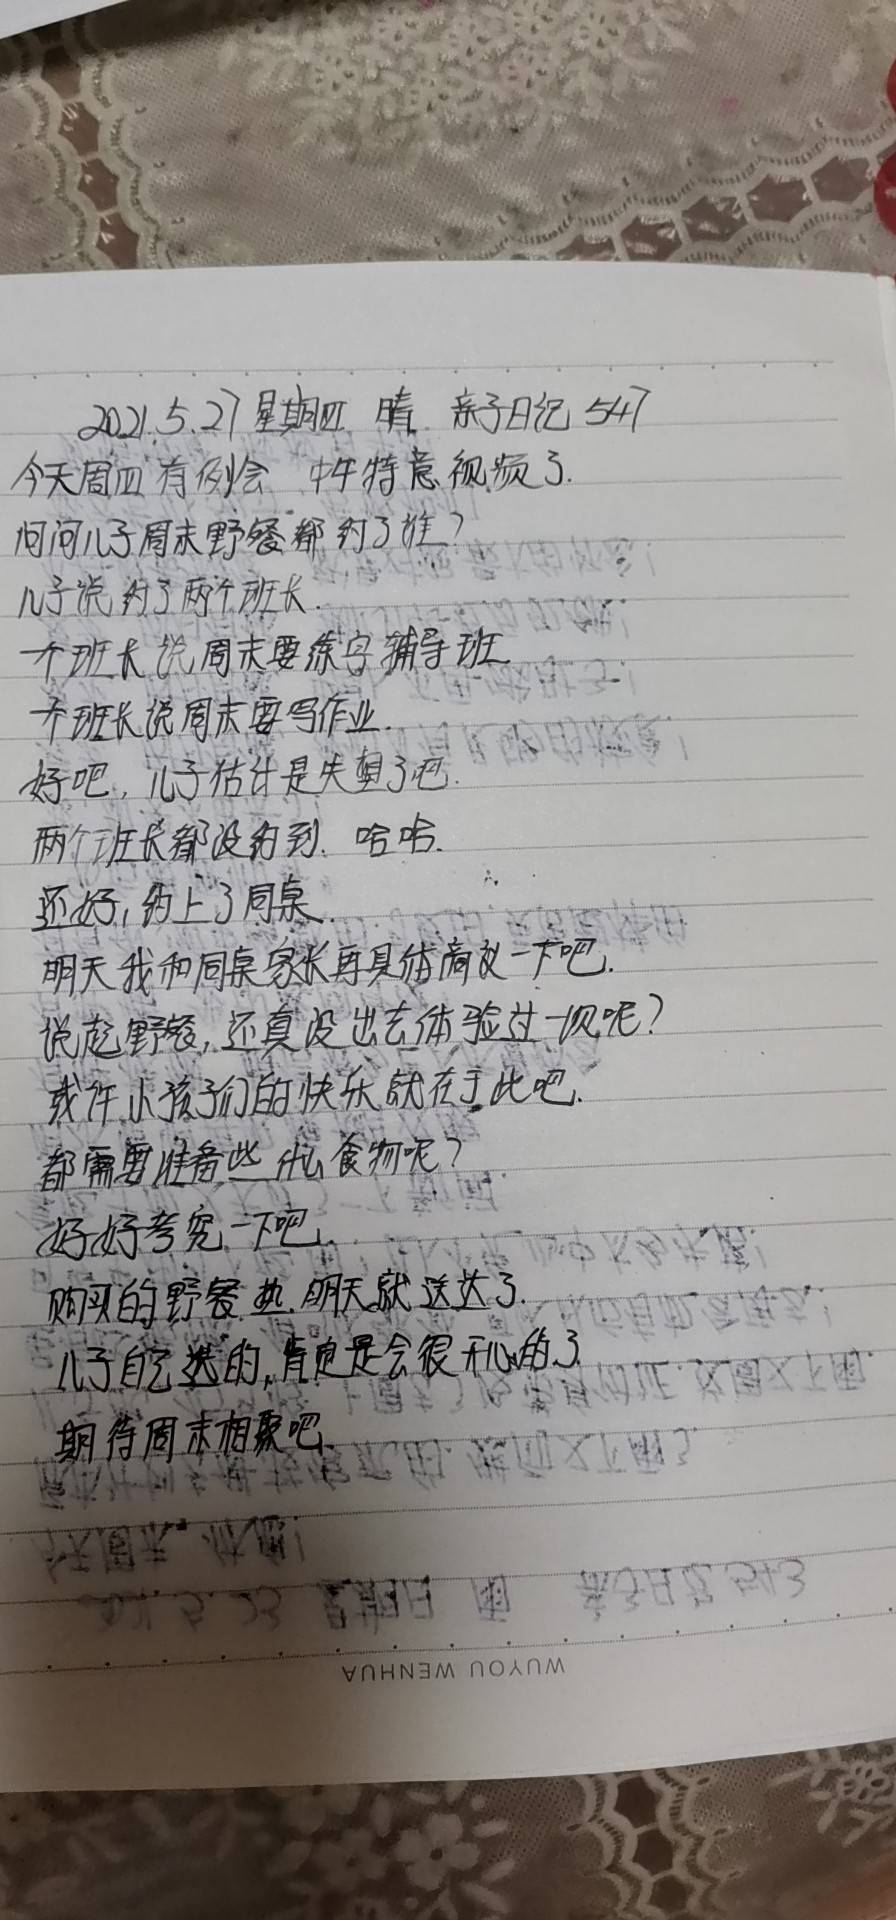 2021.5.27 星期四 晴 亲子日记 547
今天周四有例会 中午特意视频了.
问问儿子周末野餐都约了谁?
儿子说约了两个班长.
一个班长说周末要练字辅导班
一个班长说周末要写作业.
好吧,儿子估计是失望了吧.
两个班长都没约到.哈哈.
还好,约上了同桌.
明天我和同桌家长再具体商议一下吧.
说起野餐,还真没出去体验过一次呢?
或许小孩子们的快乐就在于此吧.
都需要准备些什么食物呢?
好好考究一下吧.
购买的野餐垫.明天就送达了.
儿子自己选的,肯定是会很开心的了
期待周末相聚吧
WUYOU WENHUA